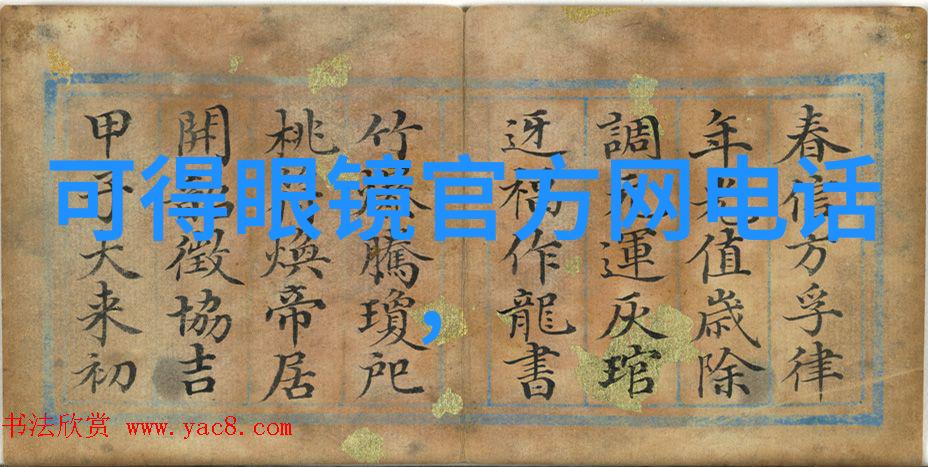 可得眼镜官方网电话
，
春信方孚律
年值歳除
調運灰琯
迓福作龍書
竹騰瓊祀
桃煥帝居
開徵協吉
甲子大来初
书法欣赏 www.yac8.com